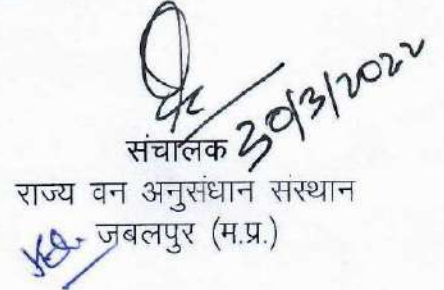 30/3/2022
संचालक
राज्य वन अनुसंधान संस्थान
जबलपुर (म.प्र.)